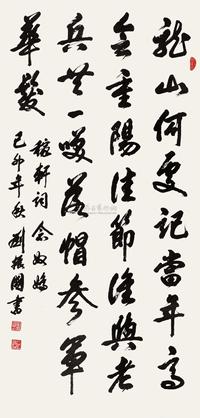 龍山何處記當年高
會重陽佳節誰與老
兵共一咲落帽參軍
華髮
稼軒詞念奴嬌
己卯年秋劉振國書